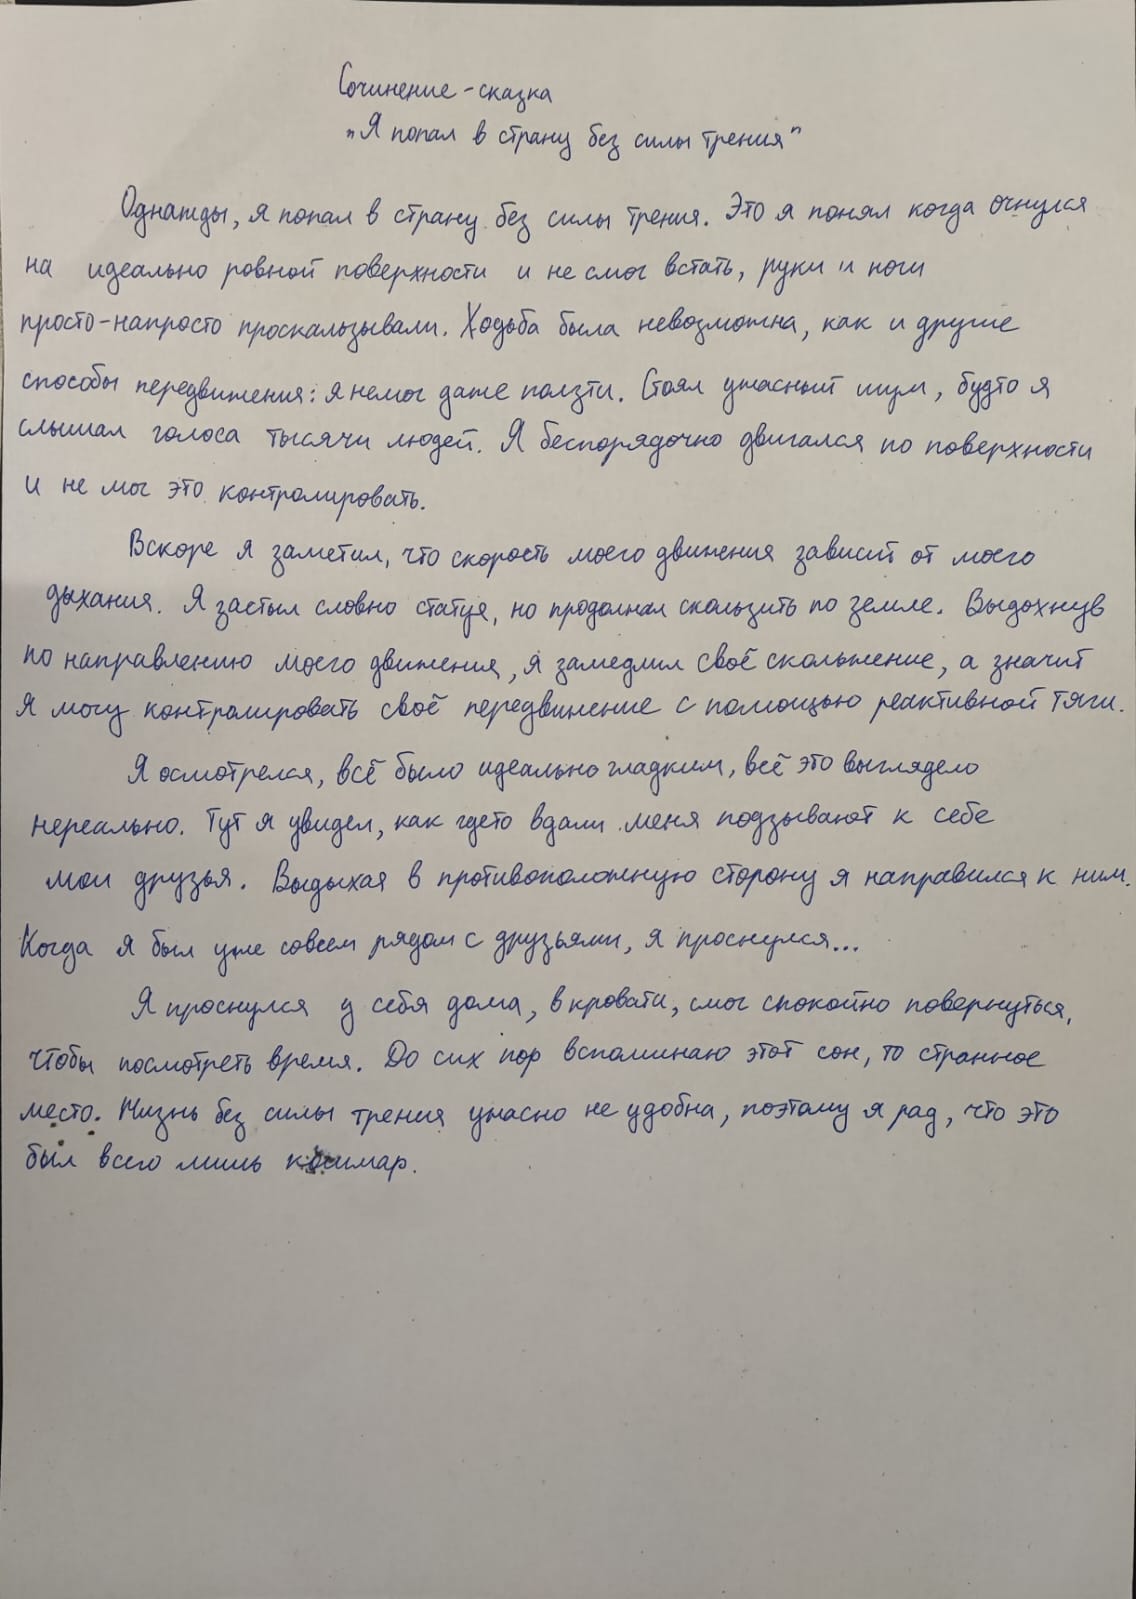 Сочинение-сказка
"Я попал в страну без силы трения"
Однажды, я попал в страну без силы трения. Это я понял когда очнулся
на идеально ровной поверхности и не смог встать, руки и ноги
просто-напросто проскальзывали. Ходьба была невозможна, как и другие
способы передвижения: я немог даже ползти. Стоял ужасный шум, будто я
слышал голоса тысячи людей. Я беспорядочно двигался по поверхности
и не мог это контролировать.
Вскоре я заметил, что скорость моего движения зависит от моего
дыхания. Я застыл словно статуя, но продолжал скользить по земле. Выдохнув
по направлению моего движения, я замедлил своё скольжение, а значит
я могу контролировать своё передвижение с помощью реактивной тяги.
Я осмотрелся, всё было идеально гладким, всё это выглядело
нереально. Тут я увидел, как гдето вдали меня подзывают к себе
мои друзья. Выдыхая в противоположную сторону я направился к ним.
Когда я был уже совсем рядом с друзьями, я проснулся...
Я проснулся у себя дома, в кровати, смог спокойно повернуться,
чтобы посмотреть время. До сих пор вспоминаю этот сон, то странное
место. Жизнь без силы трения ужасно не удобна, поэтому я рад, что это
был всего лишь кошмар.